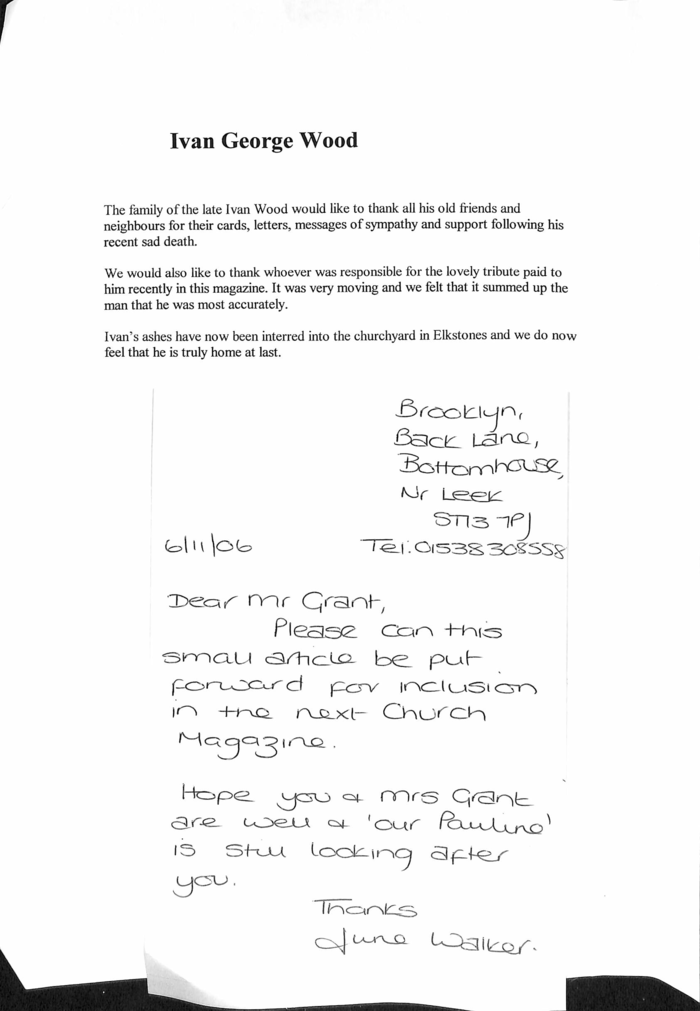 Ivan George Wood
The family of the late Ivan Wood would like to thank all his old friends and
neighbours for their cards, letters, messages of sympathy and support following his
recent sad death.
We would also like to thank whoever was responsible for the lovely tribute paid to
him recently in this magazine. It was very moving and we felt that it summed up the
man that he was most accurately.
Ivan's ashes have now been interred into the churchyard in Elkstones and we do now
feel that he is truly home at last.
Brooklyn,
Back Lane,
Bottomhouse,
Nr Leek
ST13 7PJ
6/11/06 Tel: 01538 308558
Dear Mr Grant,
Please can this
small article be put
forward for inclusion
in the next Church
Magazine.
Hope you & Mrs Grant
are well & 'our Pauline'
is still looking after
you.
Thanks
June Walker.